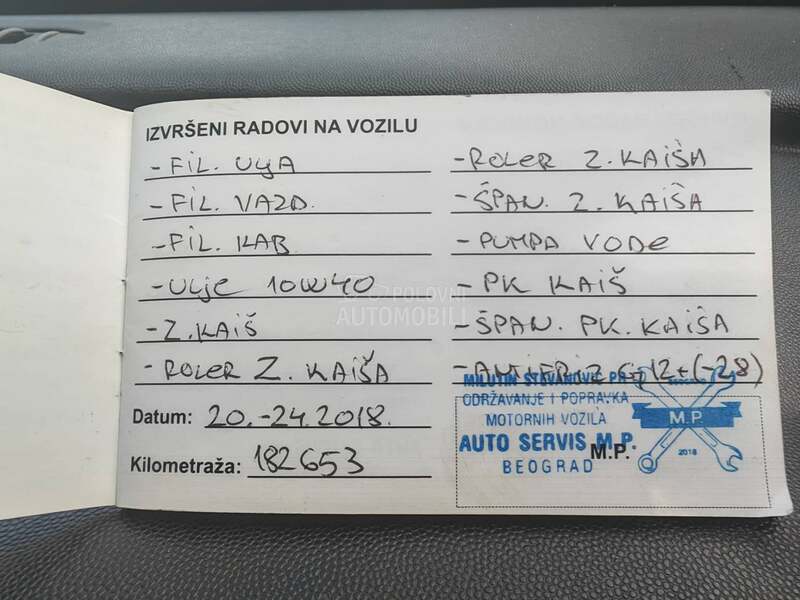 IZVRŠENI RADOVI NA VOZILU
- FIL. ULJA
- FIL. VAZD.
- FIL. KAB
- ULJE 10W40
- Z. KAIŠ
- ROLER Z. KAIŠA
- ROLER Z. KAIŠA
- ŠPAN. Z. KAIŠA
- PUMPA VODE
- PK KAIŠ
- ŠPAN. PK. KAIŠA
- ANTIFRIZ G12+ (-28)
Datum: 20.-24.2018.
Kilometraža: 182653
POLOVNI
AUTOMOBILI
MILUTIN STEVANOVIĆ PR
ODRŽAVANJE I POPRAVKA
MOTORNIH VOZILA
AUTO SERVIS M.P.
BEOGRAD
M.P.
M.P.
2018